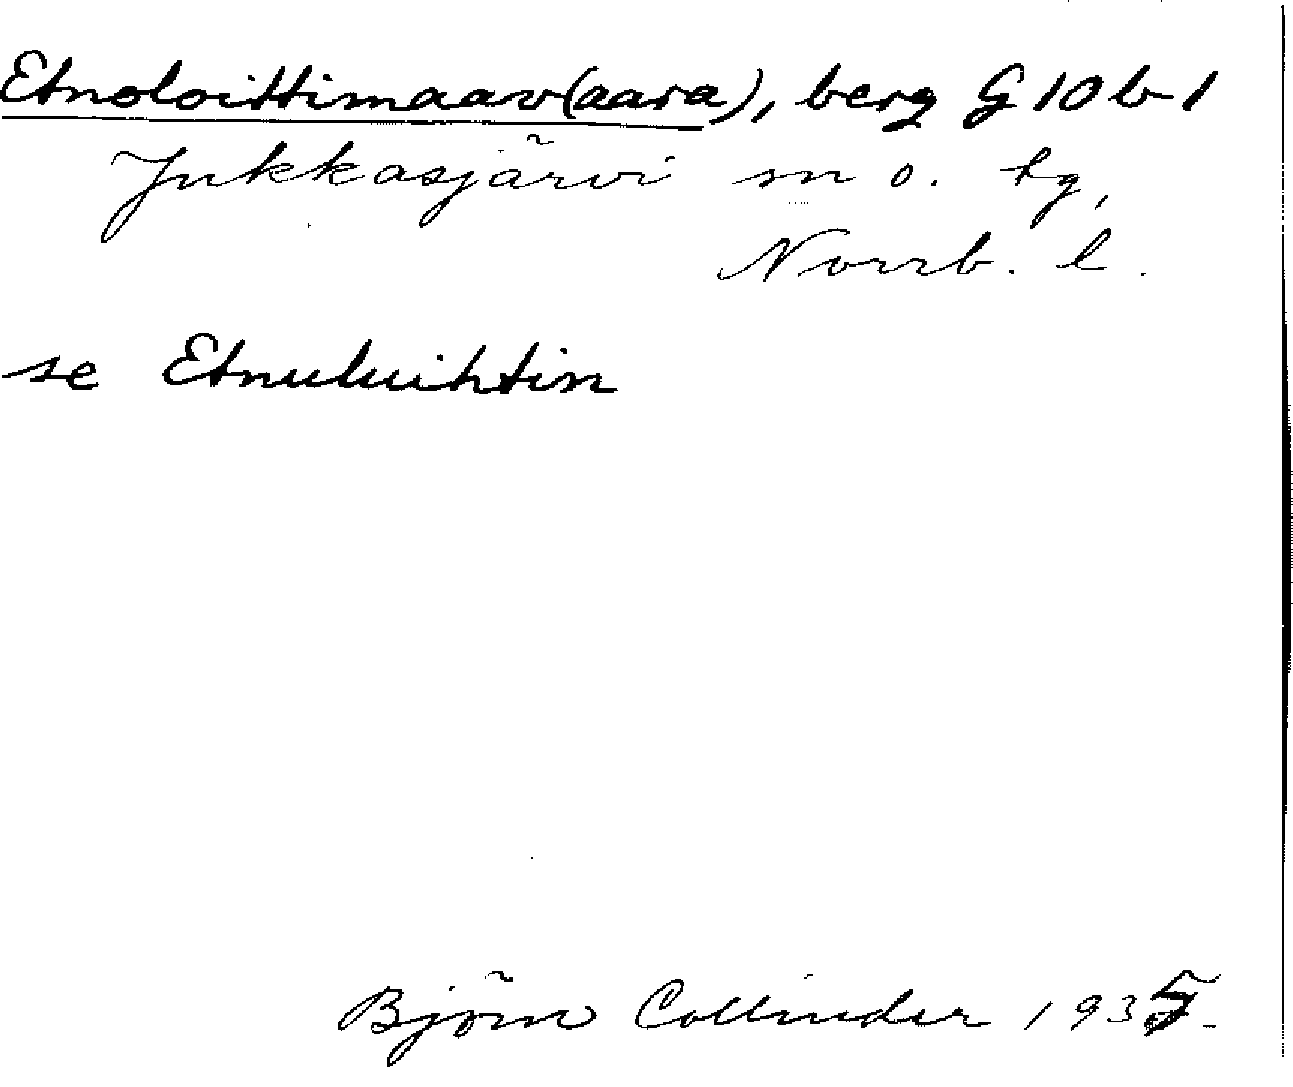 Etnoloittimaav(aara), berg G 10 b 1
Jukkasjärvi sn o. tg,
Norrb. l.
se Etnuluihtin
Björn Collinder 1935.